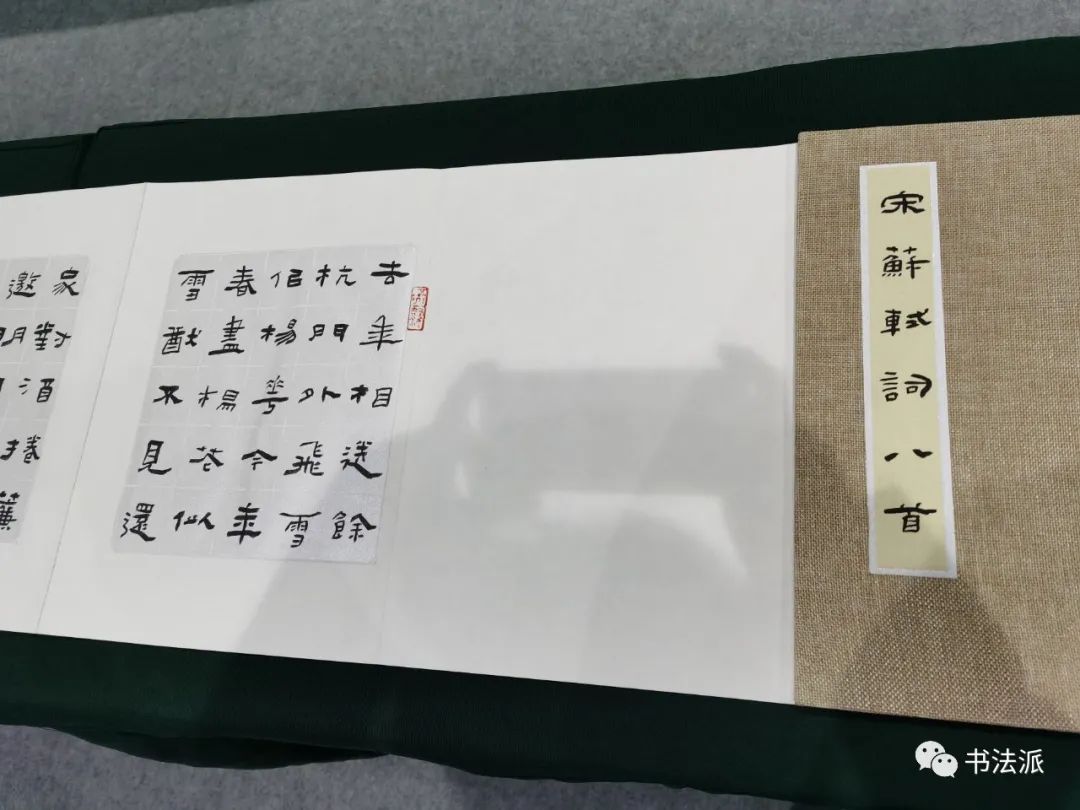 宋蘇軾詞八首
去年相送餘
杭門外飛雪
佀楊華今年
春盡楊花似
雪猷不見還
家對酒捲簾
邀明
书法派